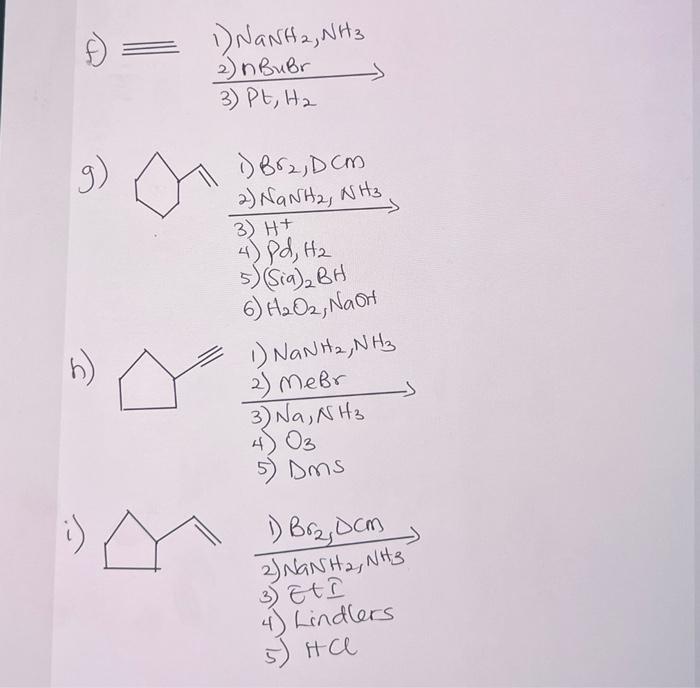 f) 1) NaNH2, NH3
2) nBuBr
3) Pt, H2
g) 1) Br2, DCM
2) NaNH2, NH3
3) H+
4) Pd, H2
5) (Sia)2BH
6) H2O2, NaOH
h) 1) NaNH2, NH3
2) MeBr
3) Na, NH3
4) O3
5) DMS
i) 1) Br2, DCM
2) NaNH2, NH3
3) EtI
4) Lindlers
5) HCl